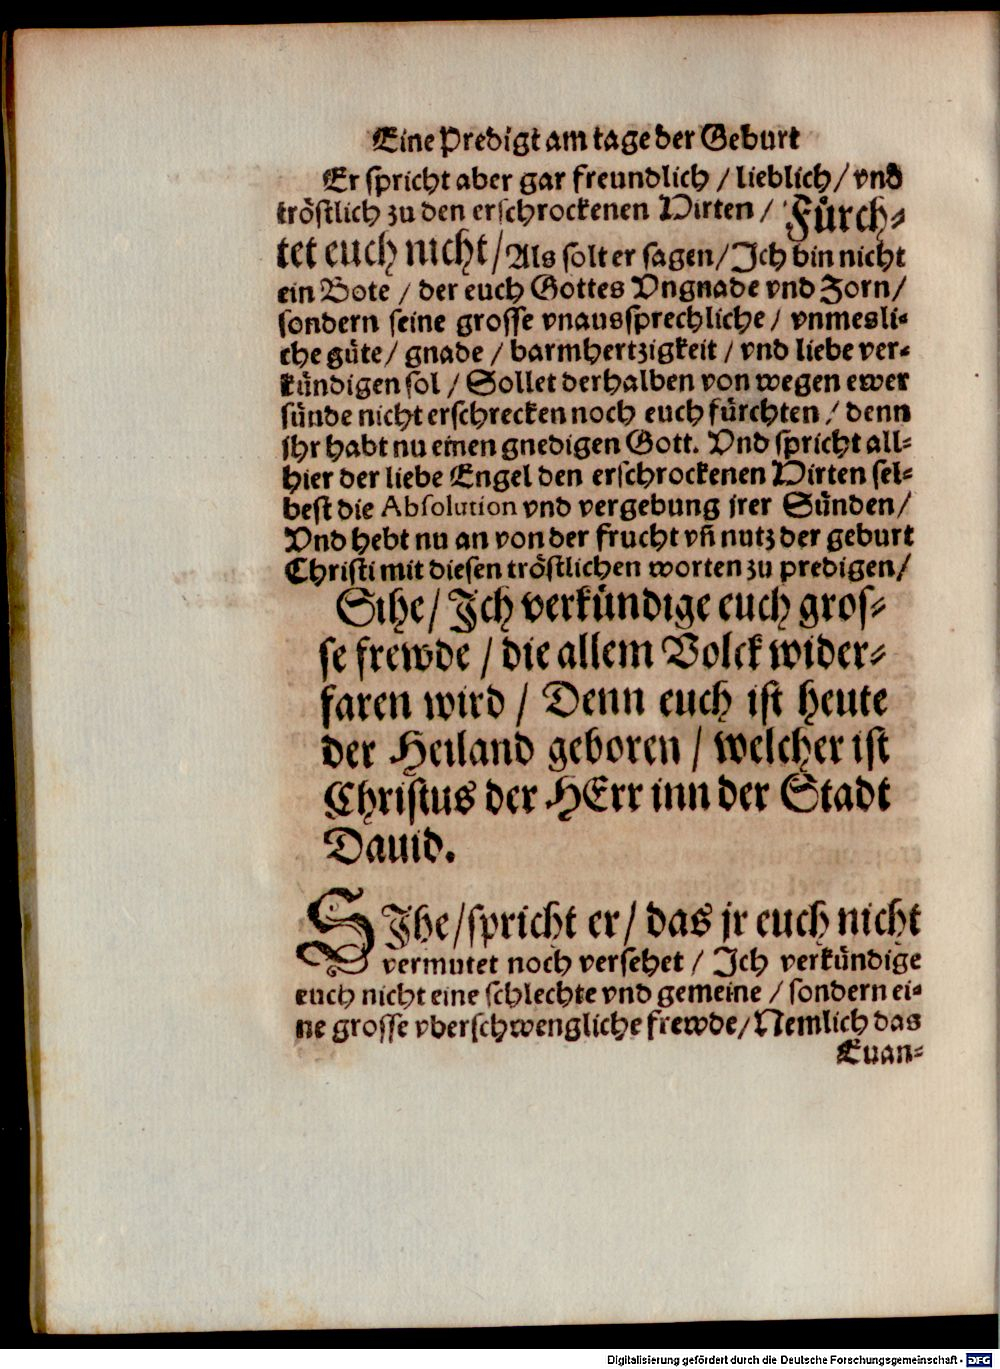 Eine Predigt am tage der Geburt
Er spricht aber gar freundlich / lieblich / vnd
tröstlich zu den erschrockenen Hirten / Fürch-
tet euch nicht / Als solt er sagen / Ich bin nicht
ein Bote / der euch Gottes Vngnade vnd Zorn /
sondern seine grosse vnaussprechliche / vnmesli-
che güte / gnade / barmhertzigkeit / vnd liebe ver-
kündigen sol / Sollet derhalben von wegen ewer
sünde nicht erschrecken noch euch fürchten / denn
ihr habt nu einen gnedigen Gott. Vnd spricht all-
hier der liebe Engel den erschrockenen Hirten sel-
best die Absolution vnd vergebung jrer Sünden /
Vnd hebt nu an von der frucht vñ nutz der geburt
Christi mit diesen tröstlichen worten zu predigen /
Sihe / Ich verkündige euch gros-
se frewde / die allem Volck wider-
faren wird / Denn euch ist heute
der Heiland geboren / welcher ist
Christus der HErr inn der Stadt
Dauid.
SIhe / spricht er / das jr euch nicht
vermutet noch versehet / Ich verkündige
euch nicht eine schlechte vnd gemeine / sondern ei-
ne grosse vberschwengliche frewde / Nemlich das
Euan-
Digitalisierung gefördert durch die Deutsche Forschungsgemeinschaft - DFG